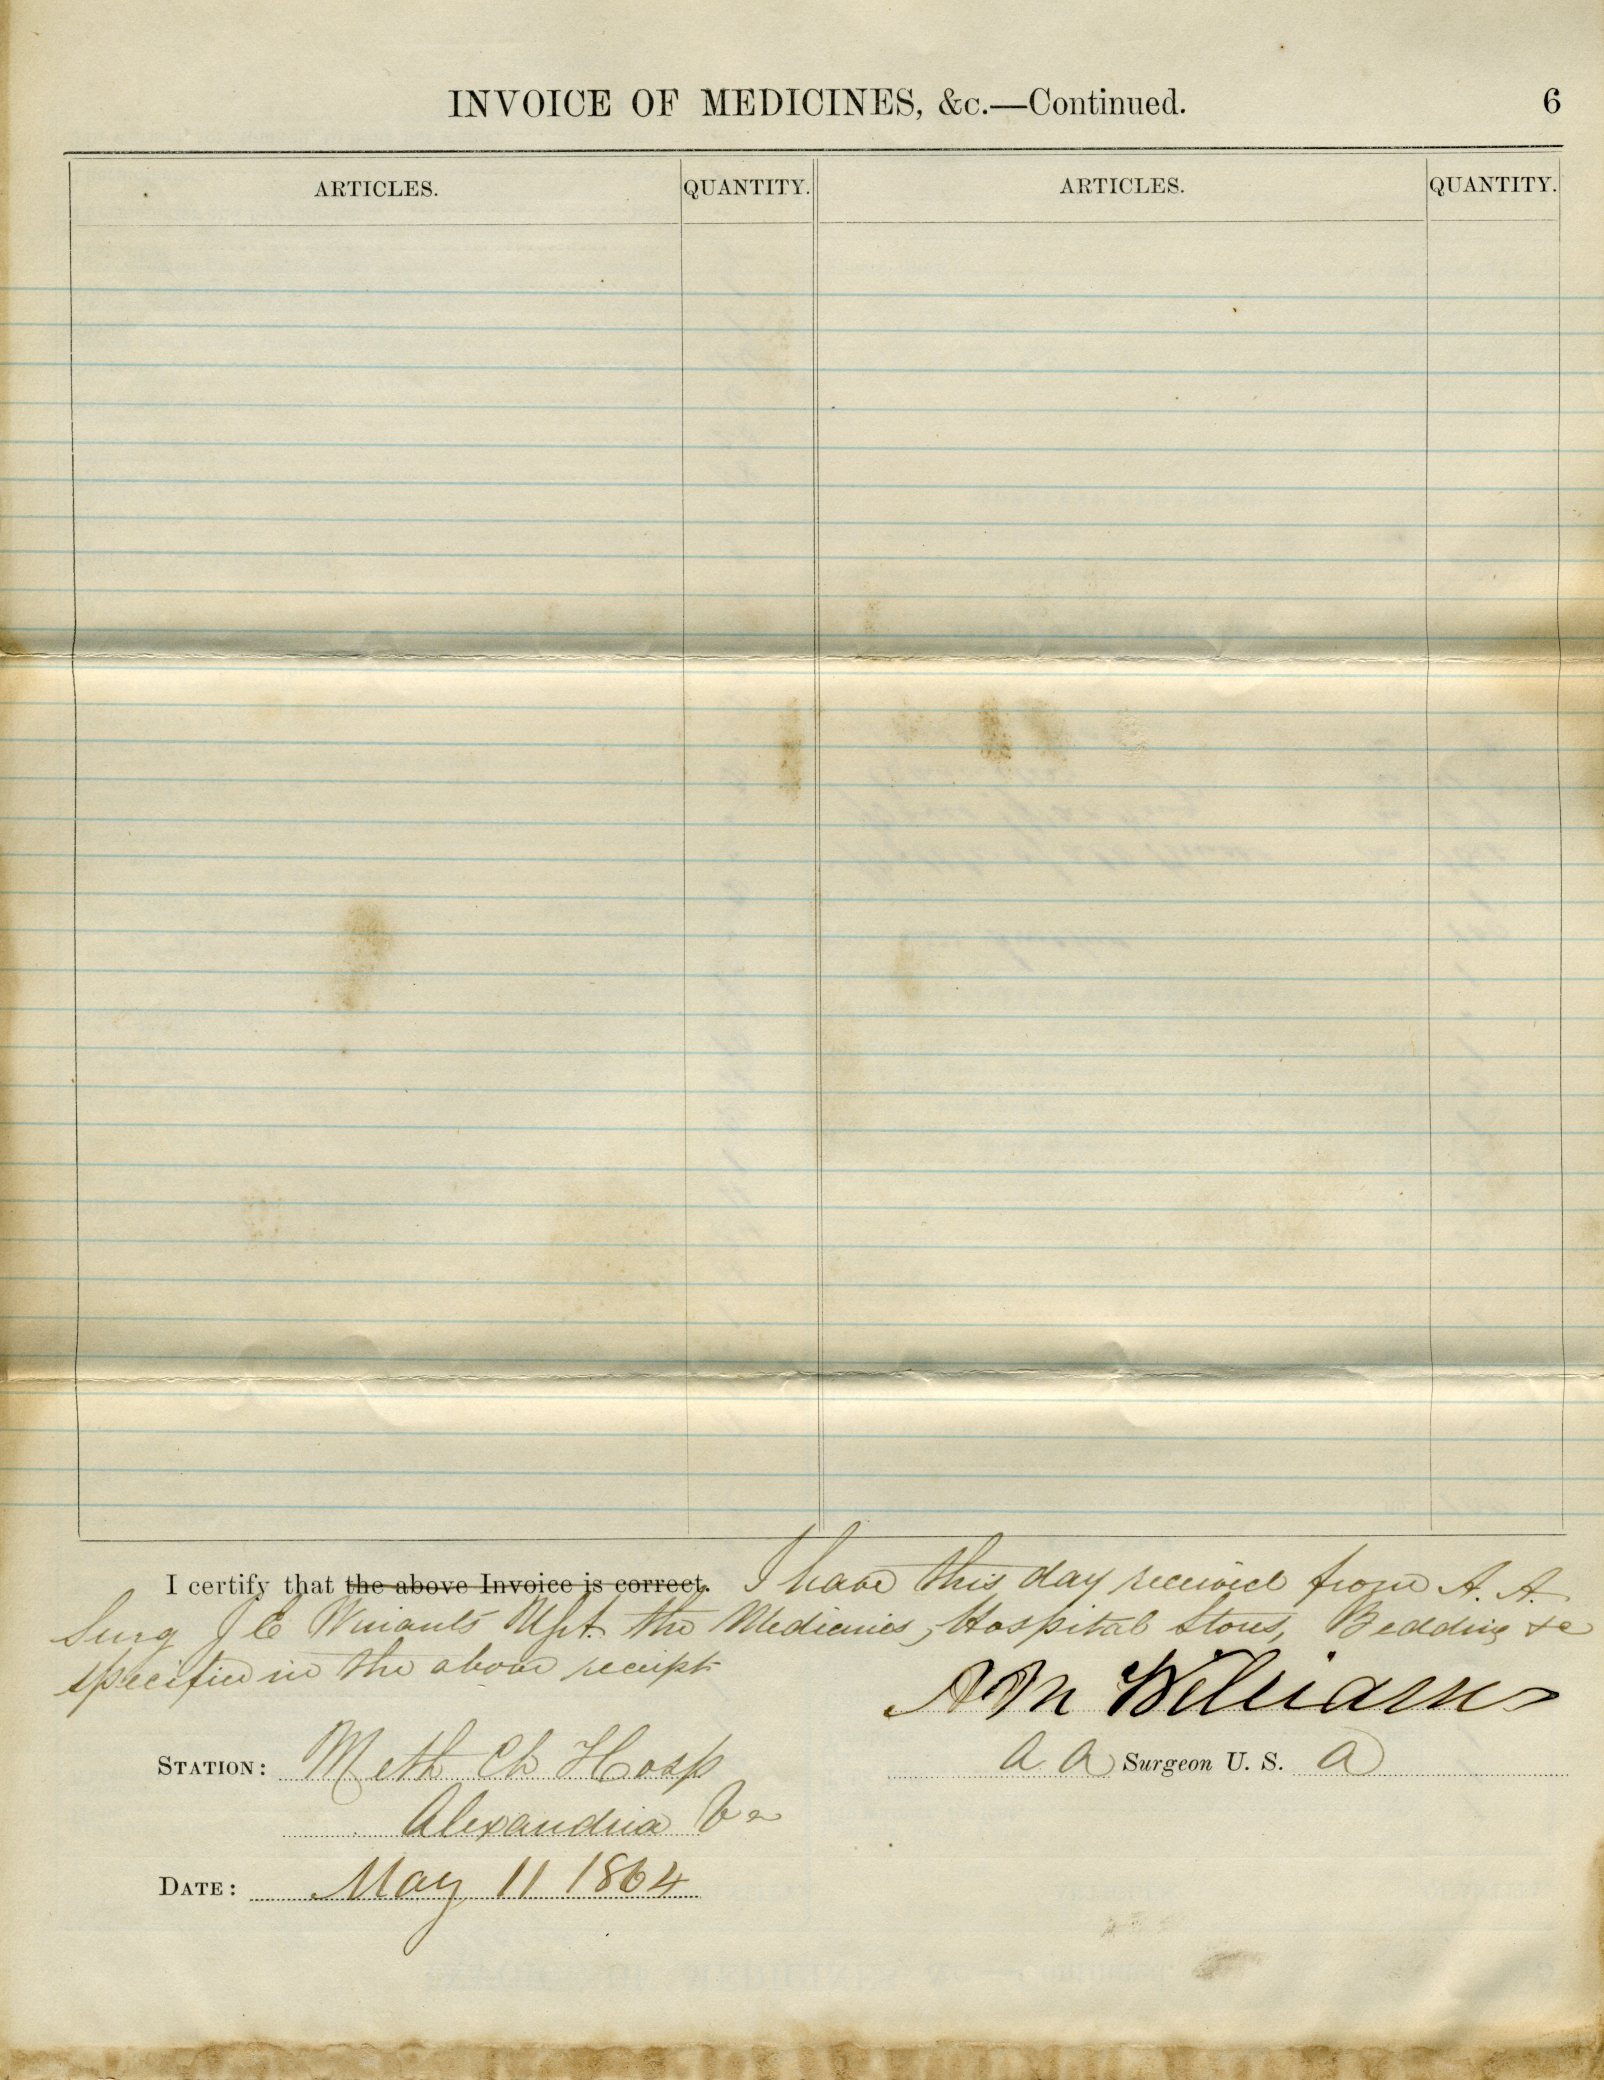 INVOICE OF MEDICINES, &c.—Continued. 6
ARTICLES. QUANTITY. ARTICLES. QUANTITY.
I certify that the above Invoice is correct. I have this day received from A. A.
Surg J E Winants USA. the Medicines, Hospital Stores, Bedding &c
specified in the above receipt
A M Williams
STATION: Meth Ch Hosp
A A Surgeon U. S. A
Alexandria Va
DATE: May 11 1864